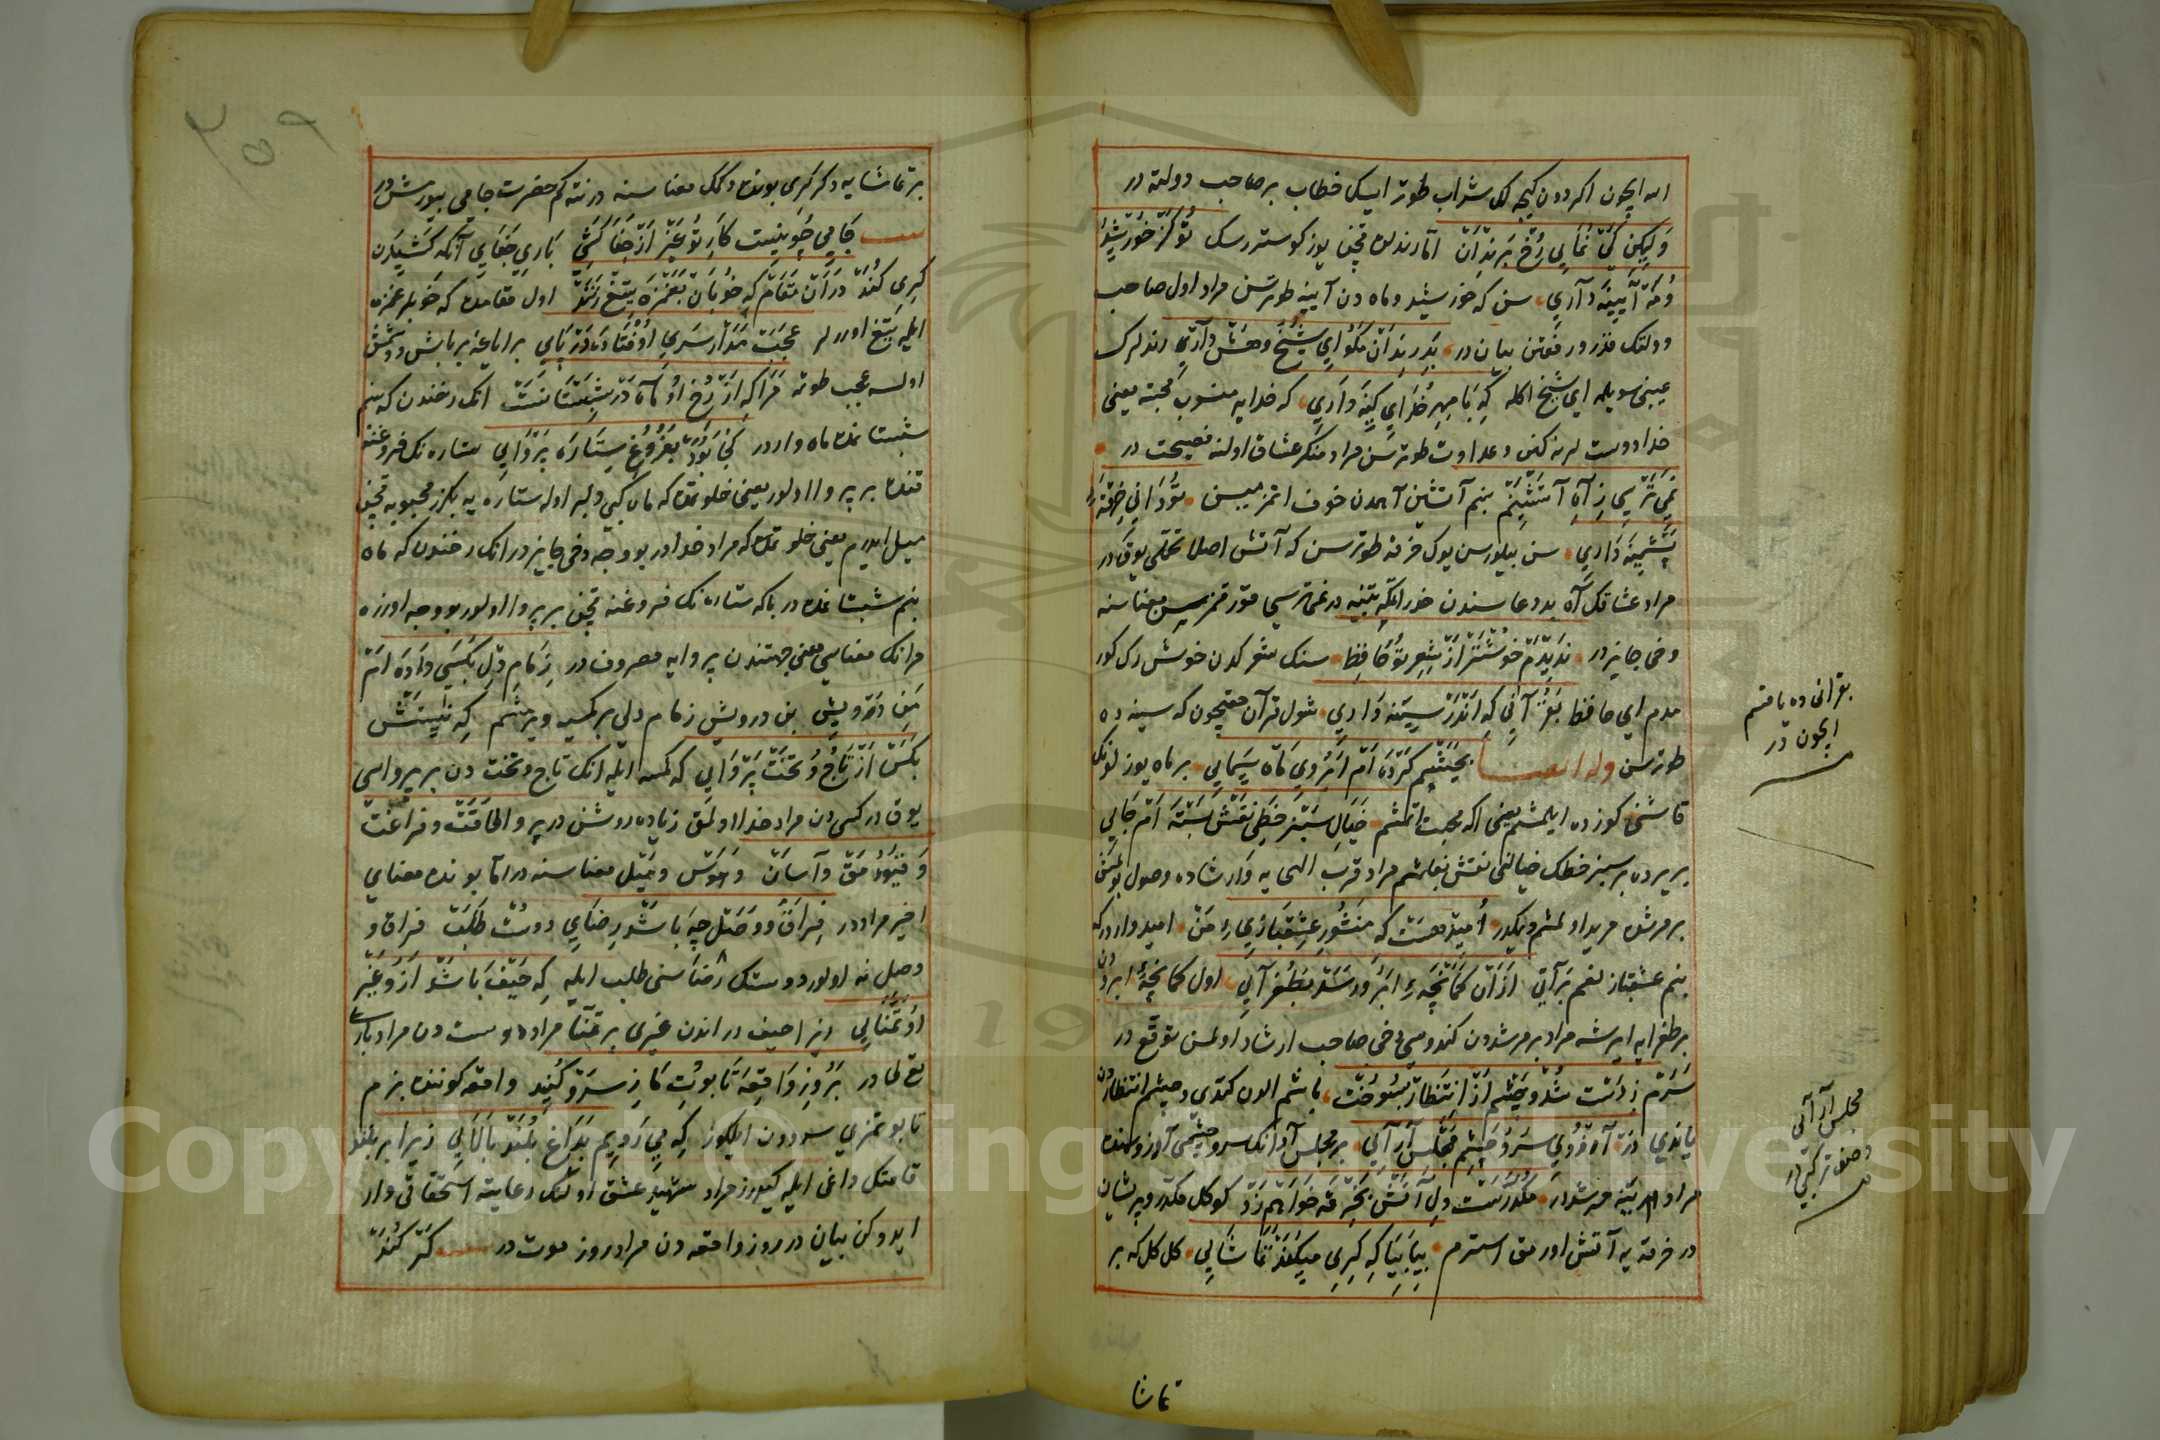 اله ایچون اکر دون کیجه کل شراب طوتر ایسک خطاب بر صاحب دولته در
وَلیکِن کَیْ نُمَایِی رُخْ بَرِنْدَانْ اما رندلره قچن یوز کوسترسک تُو کَزْ خُورْشِید
وُ مَهْ آیِینَه دَارِی سن که خورشید و ماه دن آیینه طوترسن مراد اول صاحب
دولتک قدر و رفعتن بیان در بَدِ رِنْدَانْ مَکُو ایِ شَیْخُ وهُشْ دَارْ رندلرک
عیبنی سویلمه ای شیخ اکله کِه بَا مِهرِ خُدَایِ کِینَه دَارِی که خدایه منسوب محبته یعنی
خدا دوست لرنه کین و عداوت طوترسن مراد منکر عشاق اولنه نصیحت در
نَمِی تَرْسِی زِ آهِ آتَشِینَمْ بنم آتشین آهمدن خوف اتمزمیسن تُو دَانِی خِرْقَهٔ
پَشْمِینَه دَارِی سن بیلورسن یوک خرقه طوترسن که آتش اصلا تحملی یوقدر
مراد عشاقک آه بد دعاسندن حذر ایتمکه تنبیه در نمی ترسی قورقمزمیسن معناسنه
دخی جایز در نَدِیدَمْ خُوشْتَرْ ازْ شِعرِ تُو حَافِظ سنک شعرکدن خوش رک کور
مدم ای حافظ بَقُرْآنِی کِه اَنْدَرْ سِینَه دَارِی شول قرآن حقیچون که سینه ده
طوترسن وله ایضا بِچَشْم کَرْدَه اَمْ اَبْرُویِ مَاه سِیمَایِی بر ماه یوزلونک
قاشنی کوزده ایلمشم یعنی اکه محبت اتمشم خَیَالِ سَبْز خَطِی نَقْش بَسْتَه اَمْ جَایِی
بر یرده بر سبز خطک خیالنی نقش بغلمشم مراد قرب الهی یه وارشاده وصول بولمش
بر مرشده مرید اولمشم دیکدر اُمِیدْ هَسْت کِه مَنْشُورِ عِشْقْبَازِیِ مَنْ امید وار در که
بنم عشقباز لغم برآتی ازْ اَنْ کَمَانْچَهٔ اَبْرُو رَسَدْ بَطُغْرَایِی اول کمانچهٔ ابرودن
بر طغرایه ایریشه مراد بر مرشدن کندوسی دخی صاحب ارشاد اولمسن توقع در
سَرَمْ زِ دَسْت شُدْ و چَشْم ازْ اِنْتِظَارْ بِسُوخْت باشم الدن کتدی و چشم انتظاردن
یاندی دَرْ آرْزُویِ سَرُ و چَشْمِ مَجْلِسْ آرَایِی بر مجلس آرانک سر و چشمی آرزوسنده
مراد مرتبهٔ مرشددر مُکَدَّرَسْت دِل آتَشْ بَخِرْقَه خَوَاهَمْ زَدْ کوکل مکدر و پریشان
در خرقه یه آتش اورمق استرم بِیَا بِیَا کِه کِرِی مِیکُنَدْ تَمَاشَایِی کل کل که بر
تماشا
بقرآنی ده با قسم
ایچون در
مجلس آرائی
وصف ترکیبی در
بر تماشایه دکر کری بونده دکمک معناسنه در نته کم حضرت جامی بیورمشدر
جَامِی چُو نِیسْت کَارِ تُو غَیْر ازْ جَفَا کَشِی بَارِی جَفَایِ آنکه کَشِیدَن
کِرِی کُنَدْ دَرْ آنْ مَقَامْ کِه خُوبَان بَغَمْزَه تِیغْ زَنَنْدْ اول مقامده که خوبلر غمزه
ایله تیغ اوررلر عَجَبْ مَدَارْ سَرِی اُوفْتَادَه دَرْ پَایِی بر ایاغه بر باش دوشمش
اولسه عجب طوتمه مَرَا کِه ازْ رُخِ اُو مَاهْ دَرْ شَبِسْتَانَسْت انک رخندن که بنم
شبستانمده ماه وار در کُجَا بُوَدْ بَفُرُوغِ سِتَارَه پَرْوَایِی ستاره نک فروغنه
قنده بر پروا اولور یعنی خلوتمده که ماه کبی دلبر اوله ستاره یه بکزر محبوبه قچن
میل ایدرم یعنی خلوتمده که مراد خدا در بو وجه دخی جایز در انک رخندن که ماه
بنم شبستانمده در باکه ستاره نک فروغنه قچن بر پروا اولور بو وجه اوزره
مرانک معناسی معنی جهتندن پروایه مصروف در زِمَامِ دِل بَکَسِی دَادَه اَمْ
مَنِ دَرْوِیش بن درویش زمام دلی بر کمسیه ویرمشم کِه نِیسْتَشْ
بَکَسْ ازْ تَاجُ و تَخْت پَرْوَایِی که کمسه ایله انک تاج و تخت دن بر پرواسی
یوقدر کسی دن مراد خدا اولمق زیاده روشن در پروا طاقت و فراغت
و قیورمق و آسان و هوس و میل معناسنه در اما بونده معنای
اخیر مراد در فِرَاقُ و وَصْل چِه بَاشَدْ رِضَایِ دُوسْت طَلَبْ فراق و
وصل نه اولور دوستک رضاسنی طلب ایله کِه حَیْف بَاشَدْ ازُ و غَیْرِ
اُو تَمَنَّایِی زیرا حیف در اندن غیری بر تمنا مراد دوست دن مراد باری
تعالی در بَرُوزِ وَاقِعَه تَابُوتِ مَا زِ سَرْو کُنِید واقعه کوننده بزم
تابوتمزی سرودن ایلکوز کِه مِی رَوِیم بَدَاغِ بُلَنْدْ بَالَایِی زیرا بر بلند
قامتک داغی ایله کیدرز مراد شهید عشق اولمنک رعایته استحقاقی وار
ایدوکن بیان در روز واقعه دن مراد روز موت در کَرْ کُنَدْ